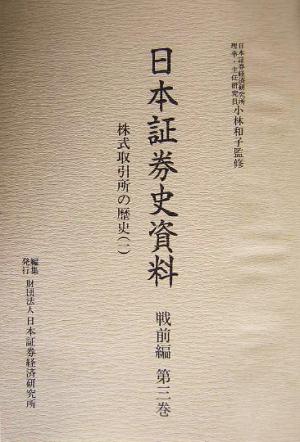 日本証券経済研究所
理事・主任研究員
小林和子監修
日本証券史資料
戦前編 第三巻
株式取引所の歴史(一)
編集
発行
財団法人 日本証券経済研究所